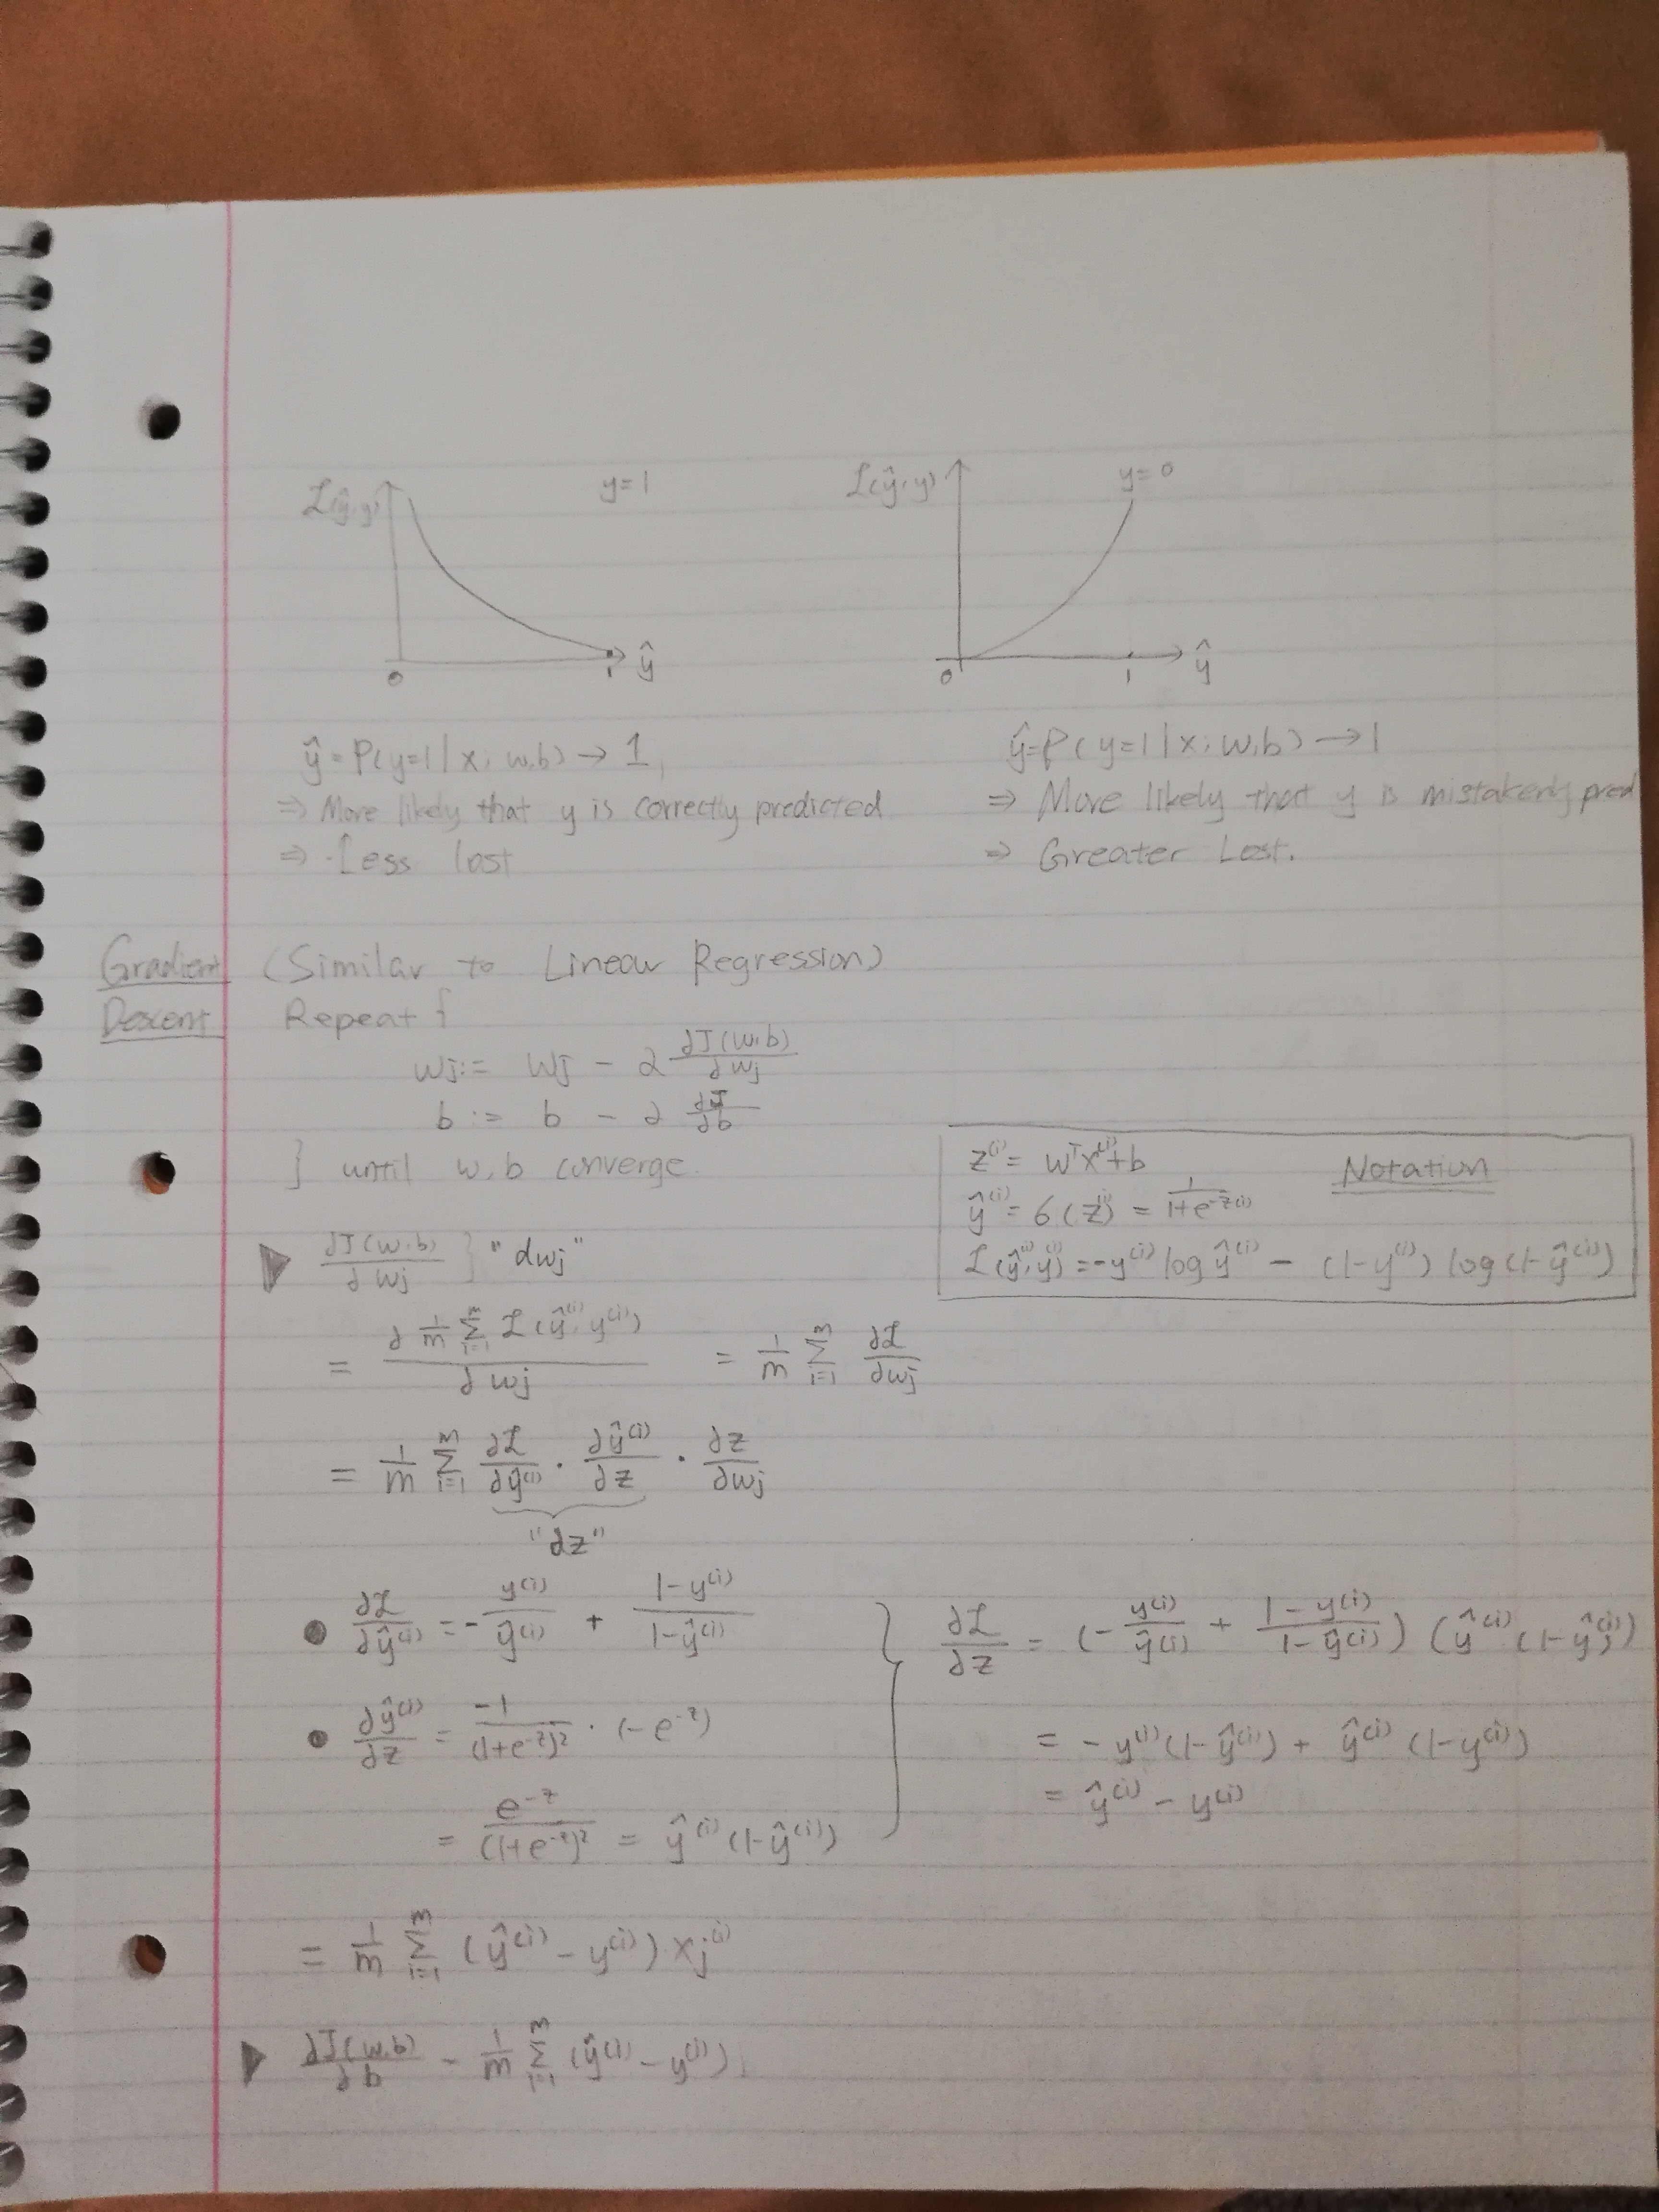 L(ŷ,y)
y=1
0
1
ŷ
L(ŷ,y)
y=0
0
1
ŷ
ŷ = P(y=1|x; w,b) → 1
⇒ More likely that y is correctly predicted
⇒ Less lost
ŷ=P(y=1|x; w,b) → 1
⇒ More likely that y is mistakenly pred
⇒ Greater Lost.
Gradient (Similar to Linear Regression)
Descent Repeat {
wj := wj - α ∂J(w,b)/∂wj
b := b - α ∂J/∂b
} until w, b converge.
Notation
z⁽ⁱ⁾ = wᵀx⁽ⁱ⁾+b
ŷ⁽ⁱ⁾ = σ(z⁽ⁱ⁾) = 1/(1+e^-z(i))
L(ŷ⁽ⁱ⁾,y⁽ⁱ⁾) = -y⁽ⁱ⁾ log ŷ⁽ⁱ⁾ - (1-y⁽ⁱ⁾) log(1-ŷ⁽ⁱ⁾)
▶ ∂J(w,b)/∂wj } "dwj"
= ∂ 1/m Σ_{i=1}^m L(ŷ⁽ⁱ⁾, y⁽ⁱ⁾) / ∂wj = 1/m Σ_{i=1}^m ∂L/∂wj
= 1/m Σ_{i=1}^m ∂L/∂ŷ⁽ⁱ⁾ · ∂ŷ⁽ⁱ⁾/∂z · ∂z/∂wj
"dz"
● ∂L/∂ŷ⁽ⁱ⁾ = - y⁽ⁱ⁾/ŷ⁽ⁱ⁾ + (1-y⁽ⁱ⁾)/(1-ŷ⁽ⁱ⁾)
● ∂ŷ⁽ⁱ⁾/∂z = -1/(1+e^-z)² · (-e^-z)
= e^-z/(1+e^-z)² = ŷ⁽ⁱ⁾(1-ŷ⁽ⁱ⁾)
∂L/∂z = (- y⁽ⁱ⁾/ŷ⁽ⁱ⁾ + (1-y⁽ⁱ⁾)/(1-ŷ⁽ⁱ⁾)) (ŷ⁽ⁱ⁾(1-ŷ⁽ⁱ⁾))
= -y⁽ⁱ⁾(1-ŷ⁽ⁱ⁾) + ŷ⁽ⁱ⁾(1-y⁽ⁱ⁾)
= ŷ⁽ⁱ⁾ - y⁽ⁱ⁾
= 1/m Σ_{i=1}^m (ŷ⁽ⁱ⁾ - y⁽ⁱ⁾) xj⁽ⁱ⁾
▶ ∂J(w,b)/∂b = 1/m Σ_{i=1}^m (ŷ⁽ⁱ⁾ - y⁽ⁱ⁾)